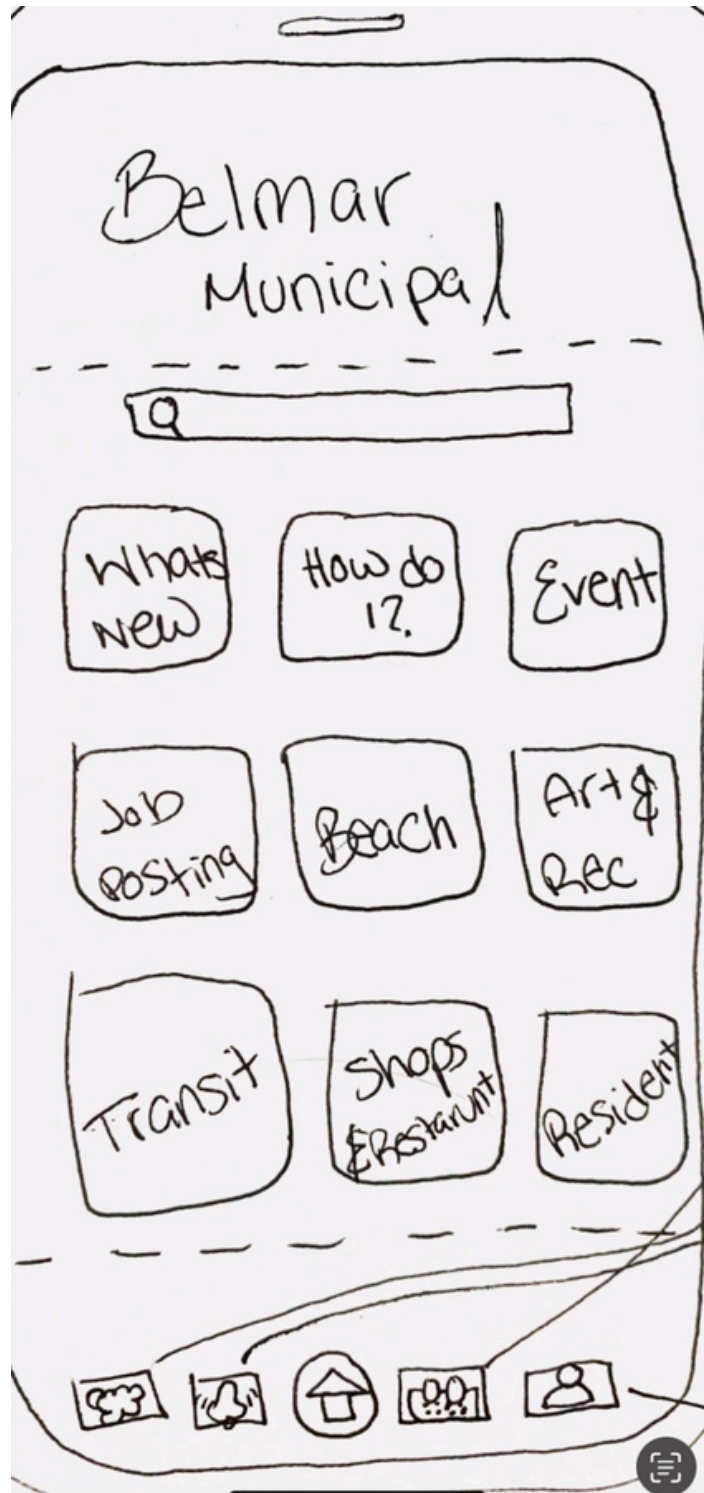 Belmar
Municipal
Whats
New
How do
I?
Event
Job
Posting
Beach
Art &
Rec
Transit
Shops
& Restarunt
Resident